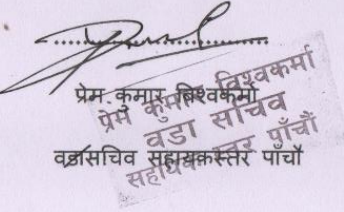 प्रेम कुमार बिश्वकर्मा
वडासचिव सहायकस्तर पाँचौ
प्रेम कुमार विश्वकर्मा
वडा सचिव
सहायक स्तर पाँचौं